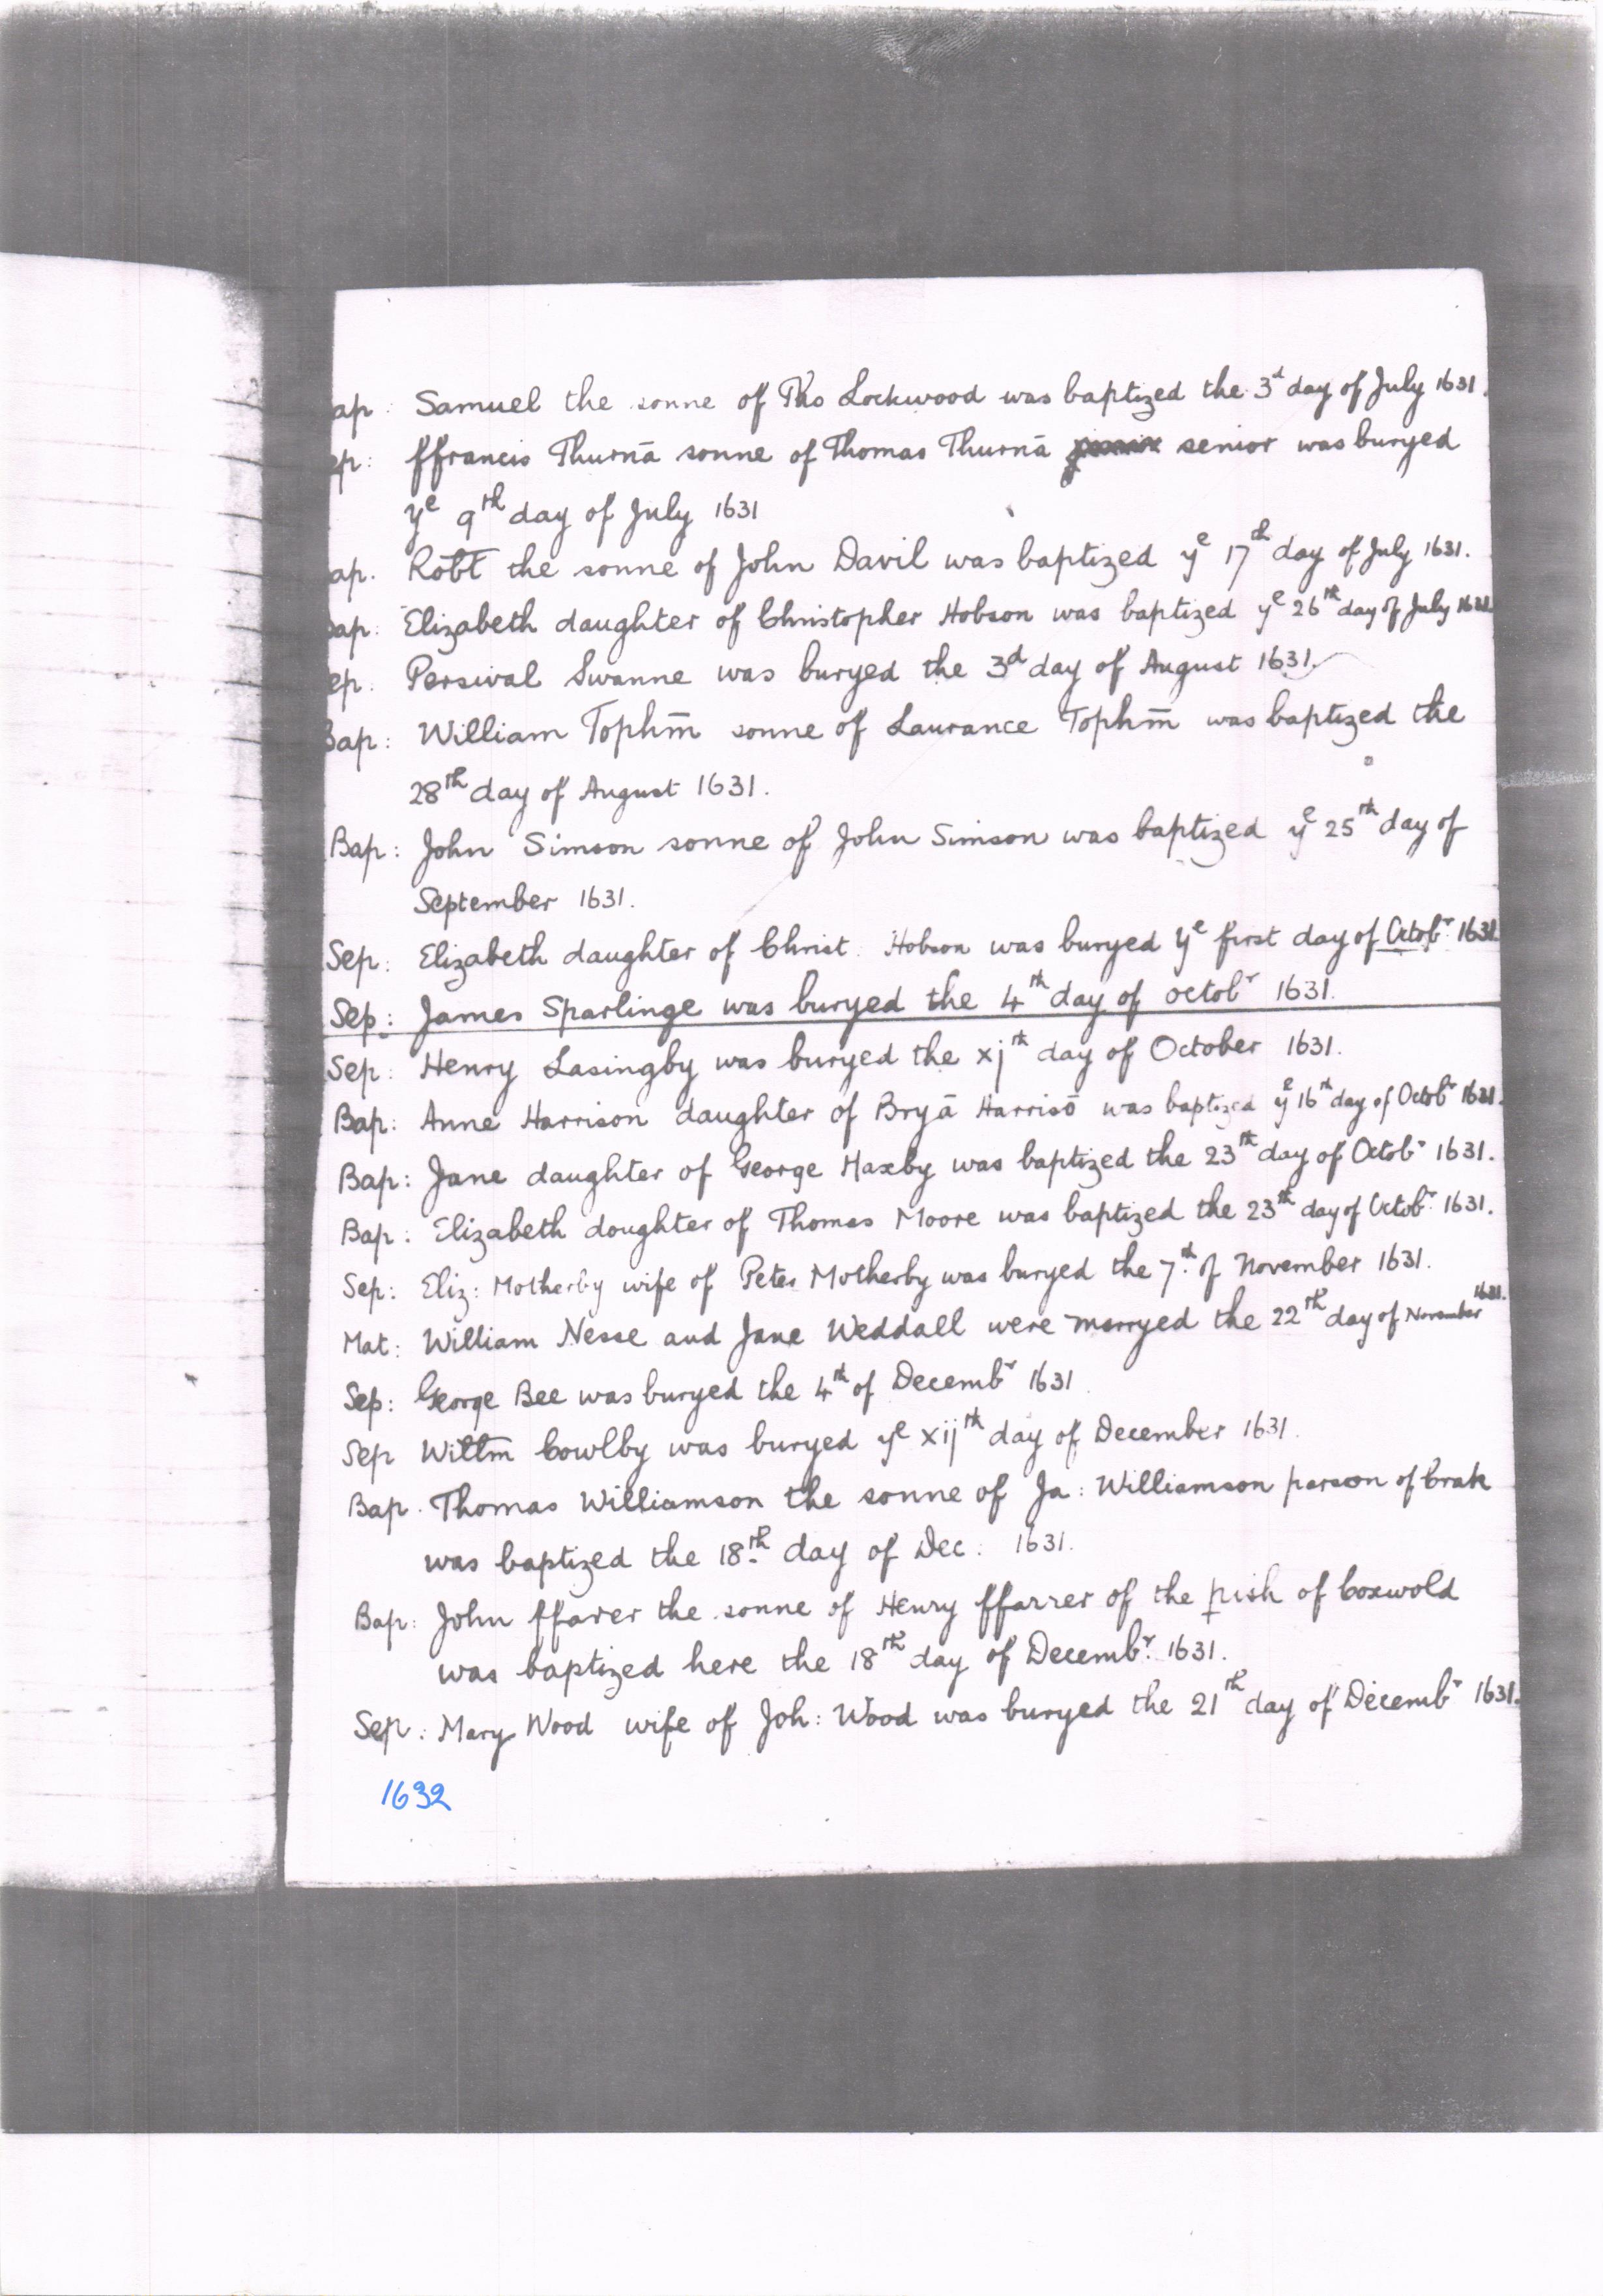 ap: Samuel the sonne of Tho Lockwood was baptized the 3d day of July 1631.
ep: ffrancis Thurnā sonne of Thomas Thurnā senior was buryed
ye 9th day of July 1631
ap. Robt the sonne of John Davil was baptized ye 17th day of July 1631.
Bap: Elizabeth daughter of Christopher Hobson was baptized ye 26th day of July 1631
ep: Persival Swanne was buryed the 3d day of August 1631.
Bap: William Tophm̄ sonne of Laurance Tophm̄ was baptized the
28th day of August 1631.
Bap: John Simson sonne of John Simson was baptized ye 25th day of
September 1631.
Sep: Elizabeth daughter of Christ. Hobson was buryed ye first day of Octobr 1631
Sep: James Sparlinge was buryed the 4th day of octobr 1631.
Sep: Henry Lasingby was buryed the xjth day of October 1631.
Bap: Anne Harrison daughter of Bryā Harrisō was baptized ye 16th day of Octobr 1631.
Bap: Jane daughter of George Maxby was baptized the 23th day of Octobr 1631.
Bap: Elizabeth doughter of Thomas Moore was baptized the 23th day of Octobr 1631.
Sep: Eliz: Motherby wife of Peter Motherby was buryed the 7th of November 1631.
Mat: William Nesse and Jane Weddall were marryed the 22th day of November 1631.
Sep: George Bee was buryed the 4th of Decembr 1631
Sep Willm Cowlby was buryed ye xijth day of December 1631.
Bap. Thomas Williamson the sonne of Ja: Williamson parson of Crak
was baptized the 18th day of Dec: 1631.
Bap: John ffarer the sonne of Henry ffarrer of the pish of Coxwold
was baptized here the 18th day of Decembr. 1631.
Sep: Mary Wood wife of Joh: Wood was buryed the 21th day of Decembr 1631.
1632